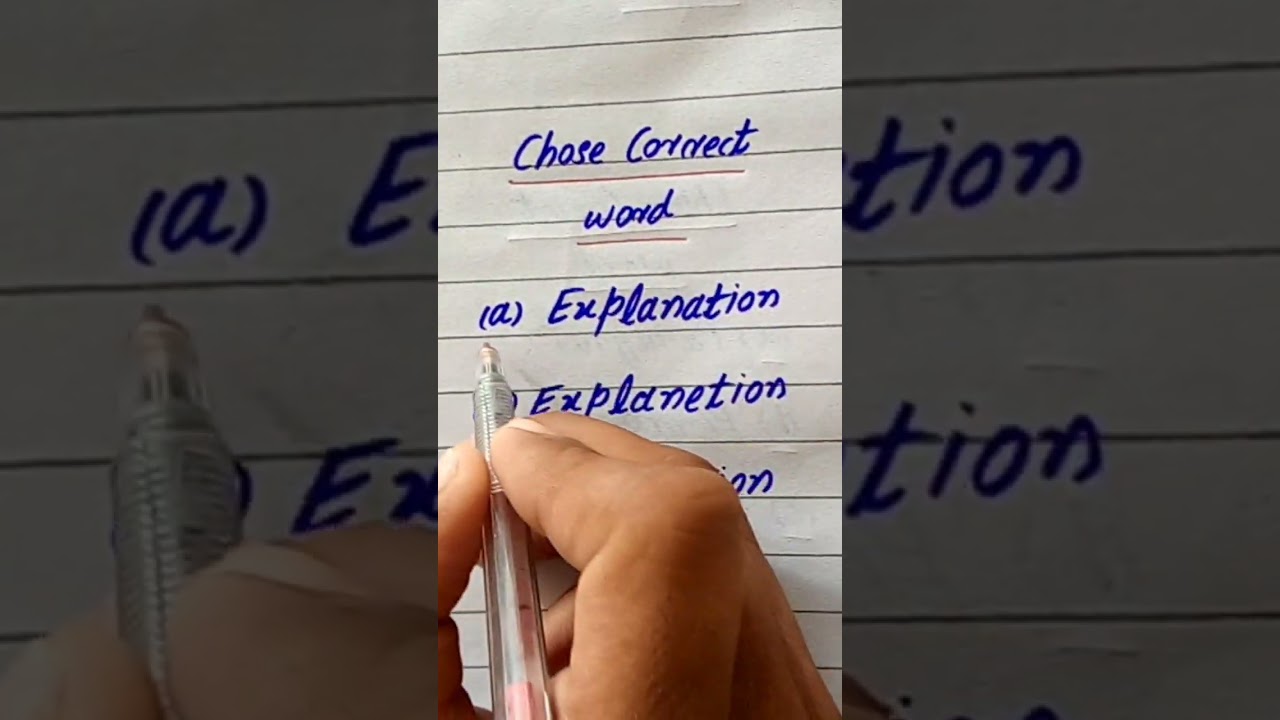 Chose Correct
word
(a) Explanation
) Explanetion
ion